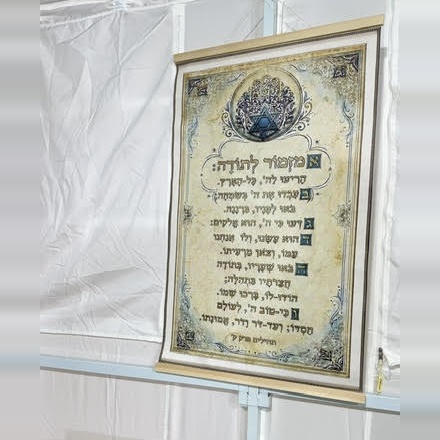 א מזמור לתודה:
הריעו לה', כל-הארץ.
ב עבדו את ה' בשמחה;
באו לפניו, ברננה.
ג דעו כי ה', הוא אלקים:
הוא עשנו, ולו אנחנו
עמו, וצאן מרעיתו.
ד באו שעריו, בתודה
חצרתיו בתהלה;
הודו-לו, ברכו שמו.
ה כי-טוב ה', לעולם
חסדו; ועד-דר ודר, אמונתו.
תהילים פרק ק'